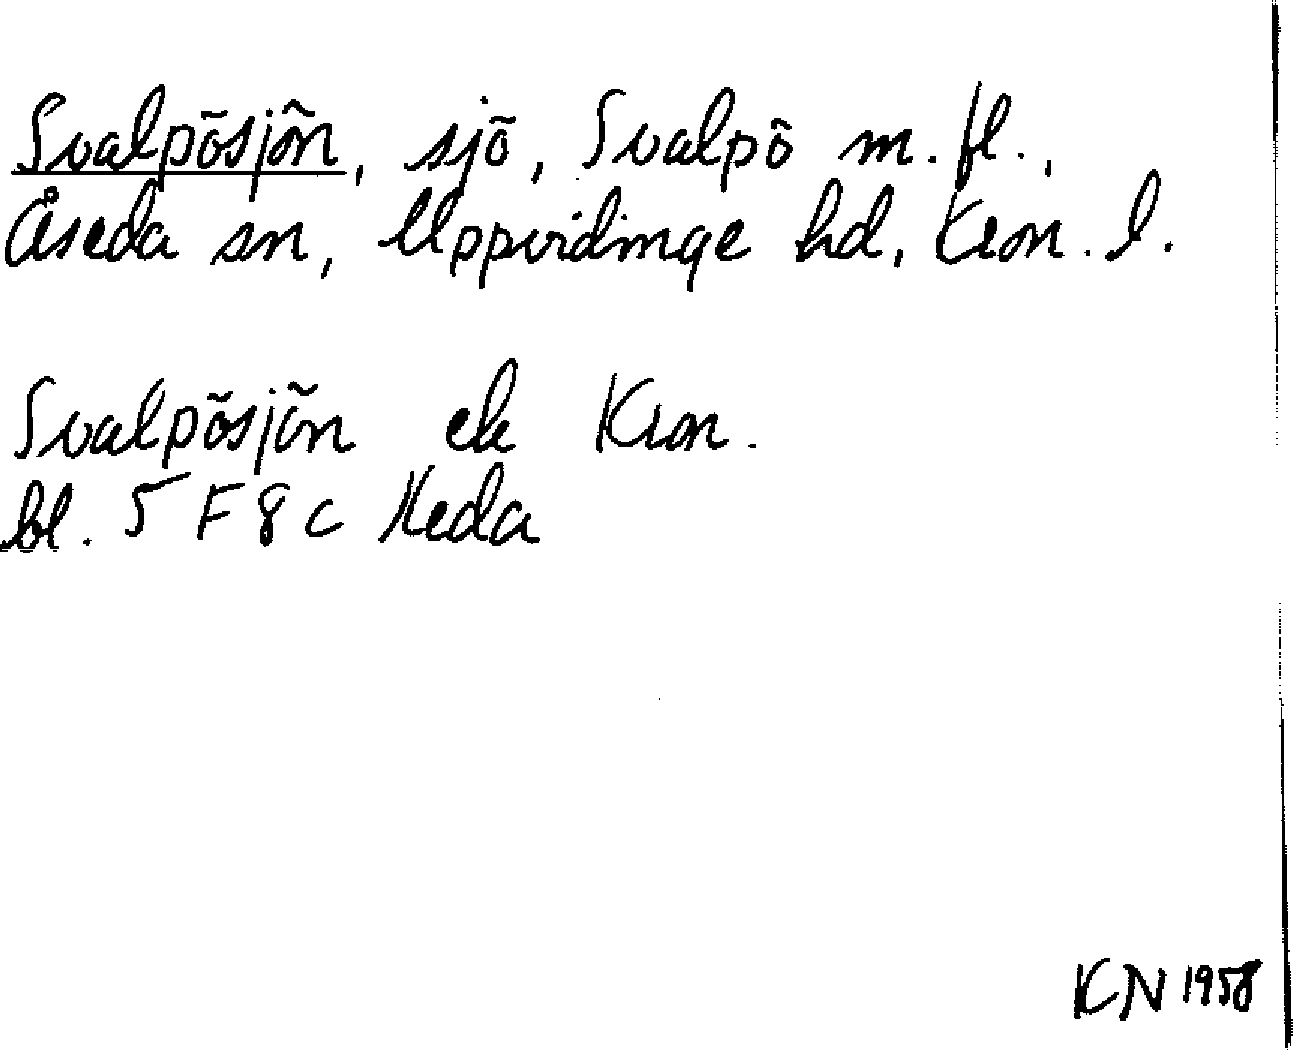 Svalpösjön, sjö, Svalpö m. fl.,
Åseda sn, Uppvidinge hd, Kron. l.
Svalpösjön ek Kron.
bl. 5 F 8 c Heda
KN 1958